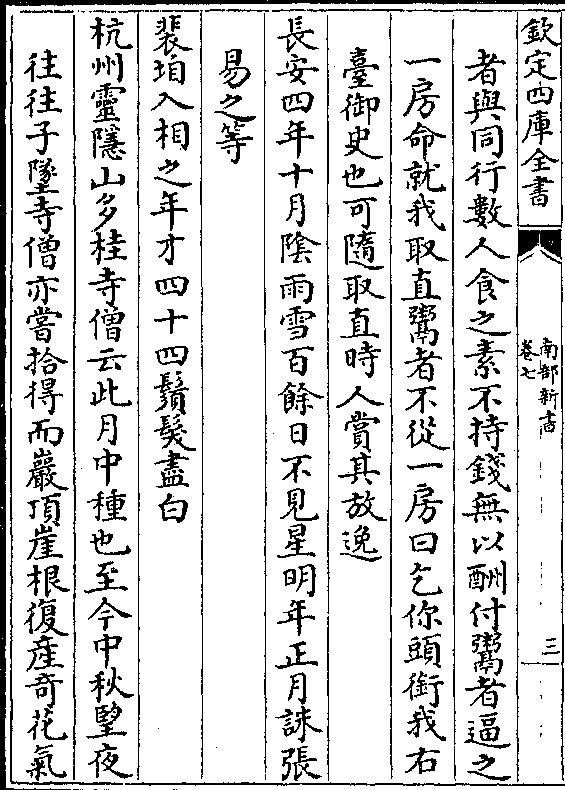 欽定四庫全書
南部新書
卷七
三
者與同行數人食之素不持錢無以酬付鬻者逼之
一房命就我取直鬻者不從一房曰乞你頭銜我右
臺御史也可隨取直時人賞其放逸
長安四年十月陰雨雪百餘日不見星明年正月誅張
易之等
裴垍入相之年才四十四鬚髮盡白
杭州靈隱山多桂寺僧云此月中種也至今中秋望夜
往往子墜寺僧亦嘗拾得而巖頂崖根復產奇花氣